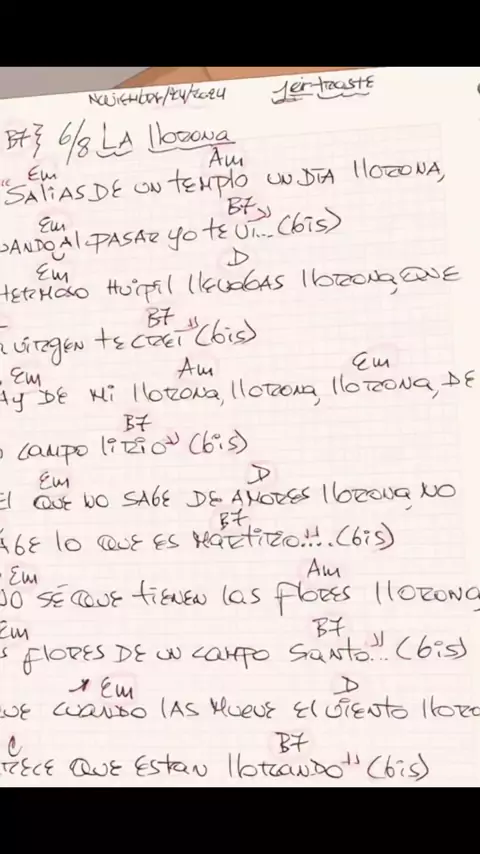 NOVIEMBRE/24/2024 1er TRASTE
B7} 6/8 LA llORONA
Em Am
"SALIAS DE UN TEMPLO UN DIA llORONA,
Em B7
UANDO Al PASAR YO TE VI... (bis)
Em D
HERMOSO HUIPIL llEVABAS llORONA, QUE
B7
VIRGEN TE CREI" (bis)
Em Am Em
AY DE MI llORONA, llORONA, llORONA, DE
B7
CAMPO lIRIO" (bis)
Em D
El QUE NO SABE DE AMORES llORONA, NO
B7
ABE lO QUE ES MARTIRIO... (bis)
Em Am
NO SÉ QUE TIENEN lAS FlORES llORONA
Em B7
S FlORES DE UN CAMPO SANTO..." (bis)
Em D
UE CUANDO lAS MUEVE El VIENTO llORO
C B7
RECE QUE ESTAN llORANDO" (bis)